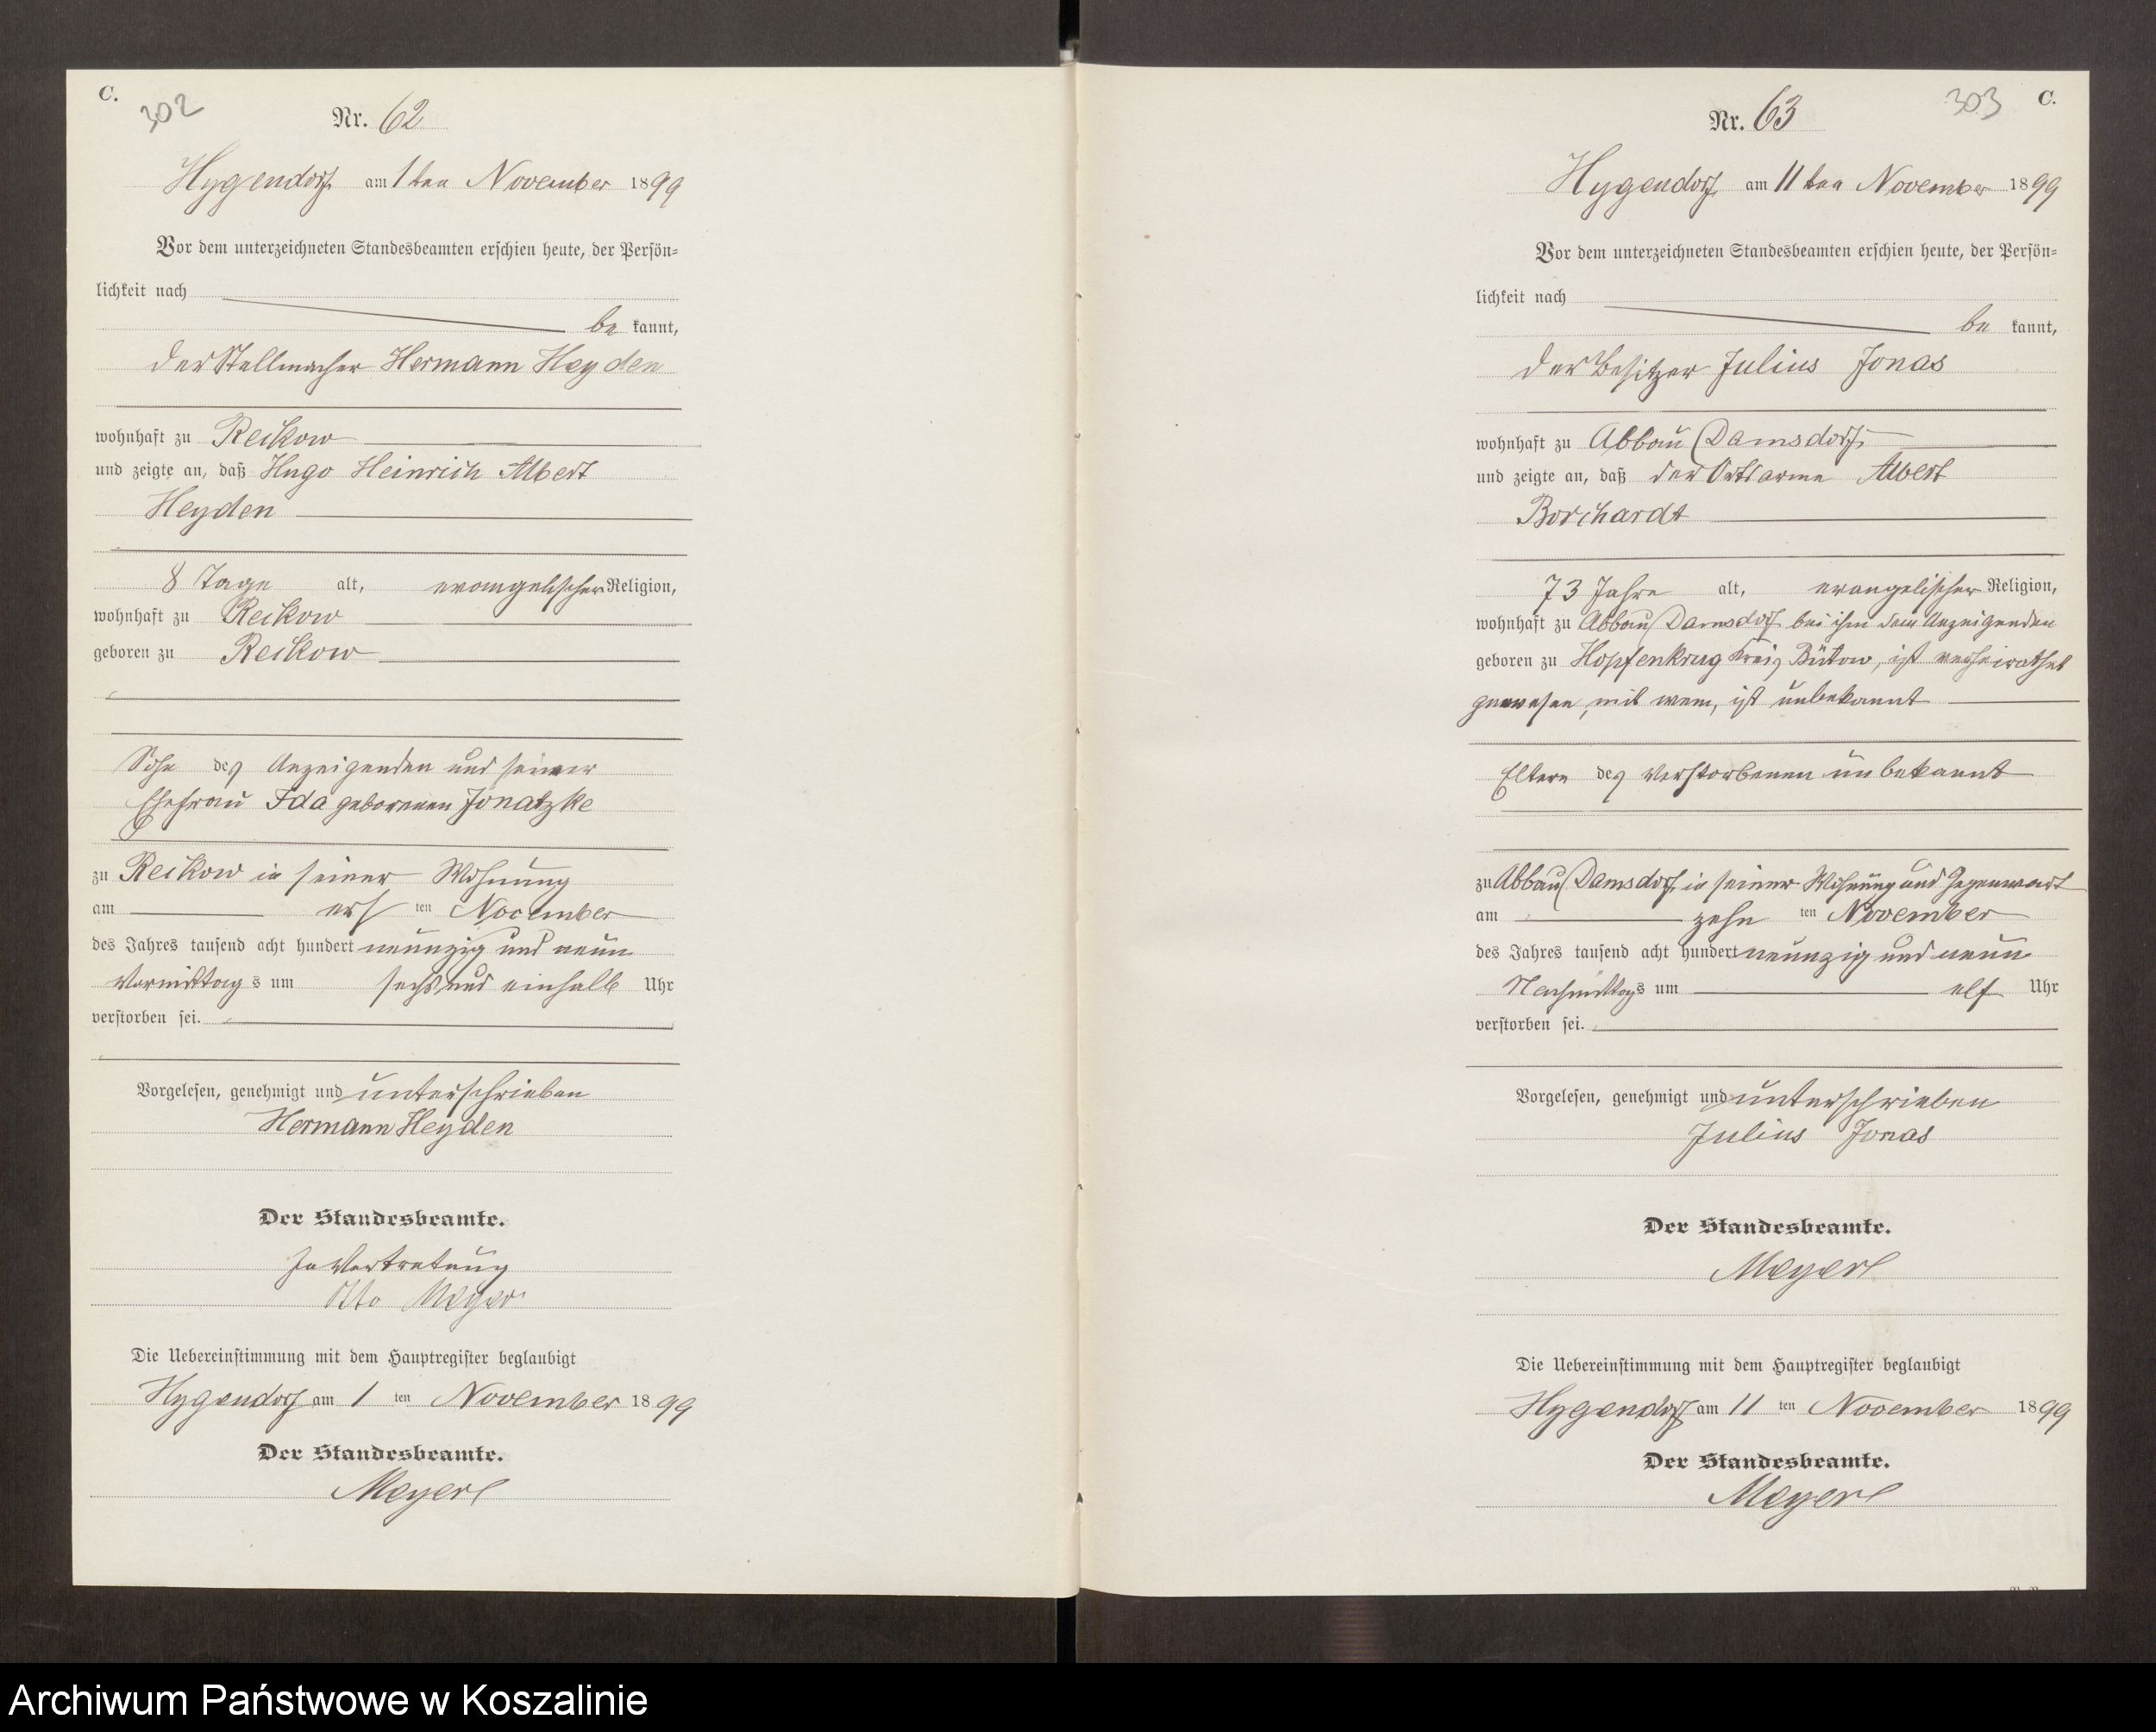 C.
302
Nr. 62
Hygendorf am 1ten November 1899
Vor dem unterzeichneten Standesbeamten erschien heute, der Persön=
lichkeit nach
be kannt,
der Stellmacher Hermann Heyden
wohnhaft zu Reckow
und zeigte an, daß Hugo Heinrich Albert
Heyden
8 Tage alt, evangelischer Religion,
wohnhaft zu Reckow
geboren zu Reckow
Sohn des Anzeigenden und seiner
Ehefrau Ida geborenen Jonatzke
zu Reckow in seiner Wohnung
am ersten November
des Jahres tausend acht hundert neunzig und neun
Vormittags um sechs und einhalb Uhr
verstorben sei.
Vorgelesen, genehmigt und unterschrieben
Hermann Heyden
Der Standesbeamte.
In Vertretung
Otto Meyer
Die Uebereinstimmung mit dem Hauptregister beglaubigt
Hygendorf am 1 ten November 1899
Der Standesbeamte.
Meyer
303
C.
Nr. 63
Hygendorf am 11ten November 1899
Vor dem unterzeichneten Standesbeamten erschien heute, der Persön=
lichkeit nach
be kannt,
der Besitzer Julius Jonas
wohnhaft zu Abbau Damsdorf
und zeigte an, daß der Ortsarme Albert
Borchardt
73 Jahre alt, evangelischer Religion,
wohnhaft zu Abbau Damsdorf bei ihm dem Anzeigenden
geboren zu Hopfenkrug Kreis Bütow, ist verheirathet
gewesen, mit wem, ist unbekannt
Eltern des Verstorbenen unbekannt
zu Abbau Damsdorf in seiner Wohnung und Gegenwart
am zehn ten November
des Jahres tausend acht hundert neunzig und neun
Nachmittags um elf Uhr
verstorben sei.
Vorgelesen, genehmigt und unterschrieben
Julius Jonas
Der Standesbeamte.
Meyer
Die Uebereinstimmung mit dem Hauptregister beglaubigt
Hygendorf am 11 ten November 1899
Der Standesbeamte.
Meyer
Archiwum Państwowe w Koszalinie